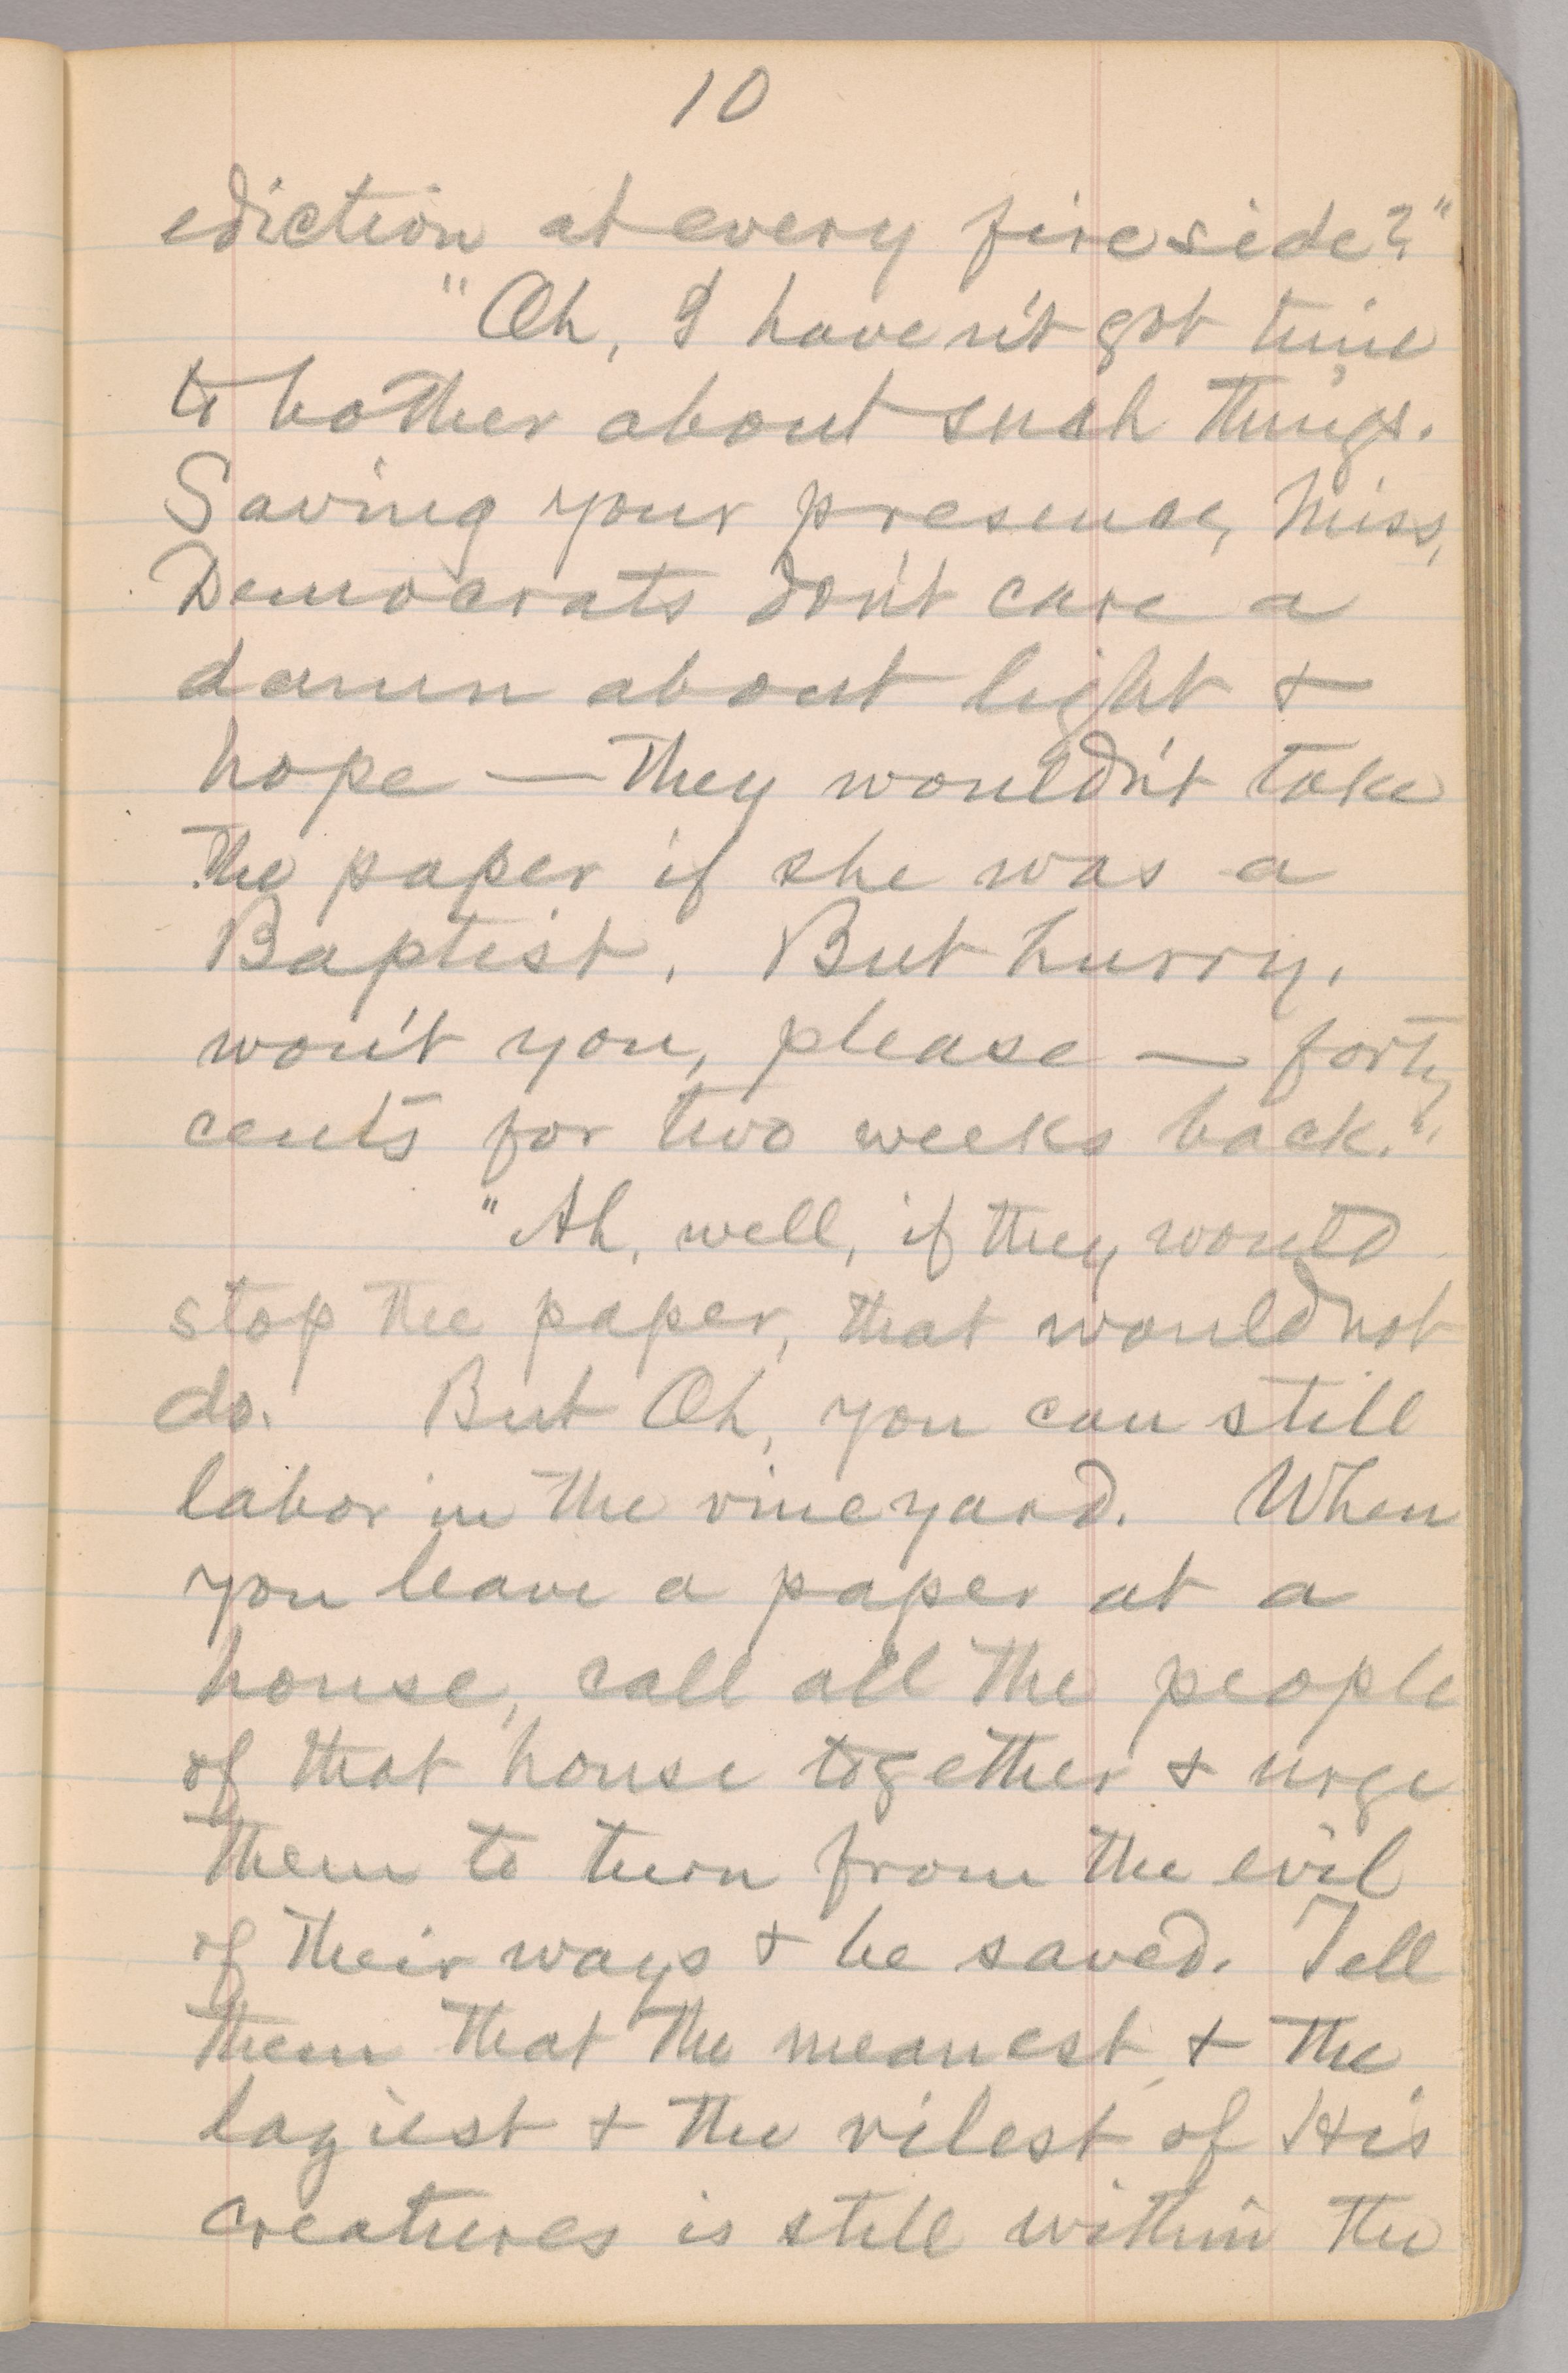 10
ediction at every fireside?"
"Oh, I haven't got time
to bother about such things.
Saving your presence, Miss,
Democrats don't care a
damn about light +
hope — they wouldn't take
the paper if she was a
Baptist. But hurry,
won't you, please — forty
cents for two weeks back."
"Ah, well, if they would
stop the paper, that would not
do. But Oh, you can still
labor in the vineyard. When
you leave a paper at a
house, call all the people
of that house together + urge
them to turn from the evil
of their ways + be saved. Tell
them that the meanest + the
laziest + the vilest of His
creatures is still within the